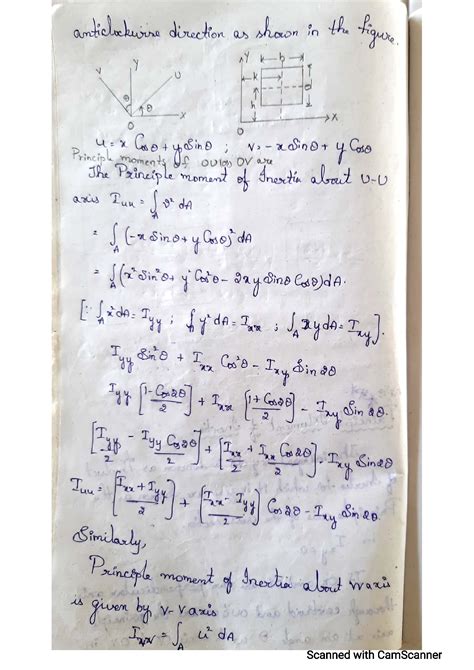 anticlockwise direction as shown in the figure.
V Y U θ θ O x
Y b k d h O X
u = x Cosθ + y Sinθ ; v = - x Sinθ + y Cosθ
Principle moments of OU OV are
The Principle moment of Inertia about U-U
axis I_uu = ∫_A v² dA
= ∫_A (-x Sinθ + y Cosθ)² dA
= ∫_A (x² Sin²θ + y² Cos²θ - 2xy Sinθ Cosθ) dA.
[∵ ∫_A x² dA = I_yy ; ∫_A y² dA = I_xx ; ∫_A xy dA = I_xy].
I_yy Sin²θ + I_xx Cos²θ - I_xy Sin 2θ
I_yy [1 - Cos2θ / 2] + I_xx [1 + Cos2θ / 2] - I_xy Sin 2θ.
[I_yy / 2 - I_yy Cos2θ / 2] + [I_xx / 2 + I_xx Cos2θ / 2] - I_xy Sin2θ
I_uu = [I_xx + I_yy / 2] + [I_xx - I_yy / 2] Cos2θ - I_xy Sin 2θ.
Similarly,
Principle moment of Inertia about vv axis
is given by V-V axis
I_vv = ∫_A u² dA
Scanned with CamScanner